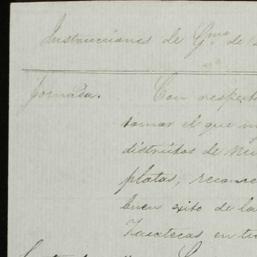 Instrucciones de Gmo de
Jornada. Con respecto
tomar el que in
distritos de Mi
platas, recono
buen exito de la
Zacatecas en tu